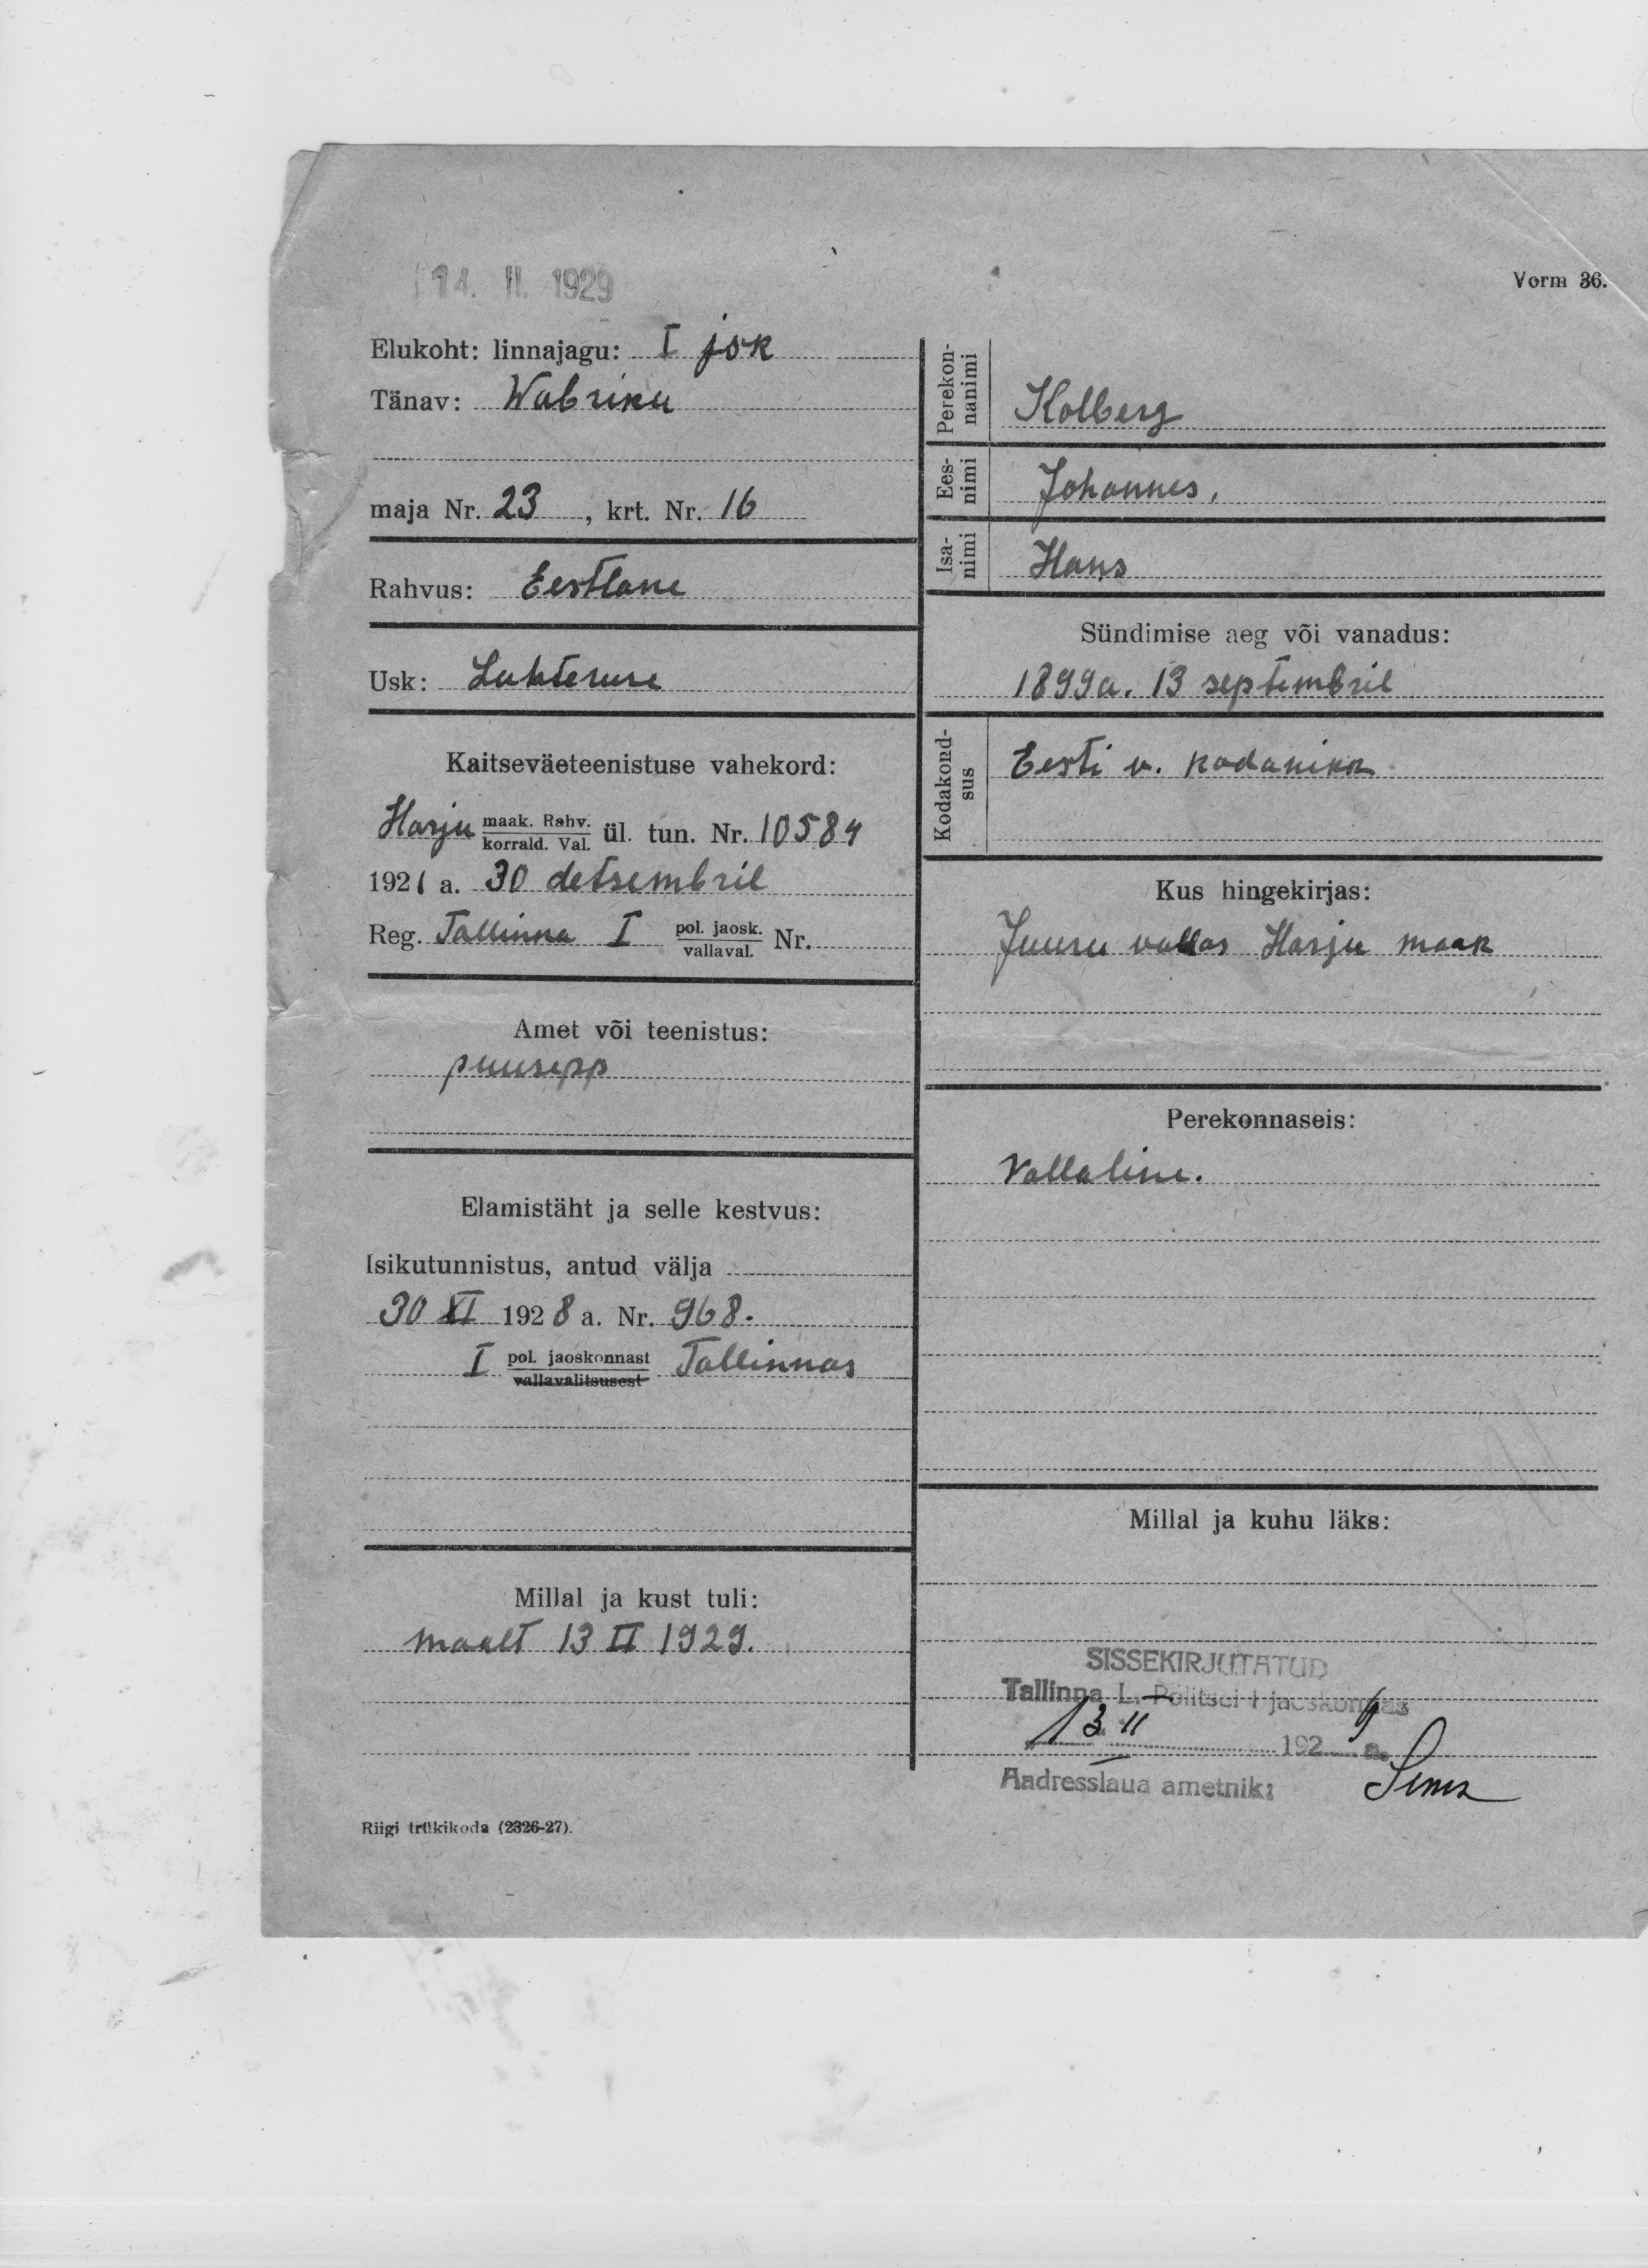 14. II. 1929
Vorm 36.
Elukoht: linnajagu: I jsk
Tänav: Wabriku
maja Nr. 23, krt. Nr. 16
Rahvus: Eestlane
Usk: Luhteruse
Kaitseväeteenistuse vahekord:
Harju maak. Rahv. korrald. Val. ül. tun. Nr. 10584
1921 a. 30 detsembril
Reg. Tallinna I pol. jaosk. vallaval. Nr.
Amet või teenistus:
puusepp
Elamistäht ja selle kestvus:
Isikutunnistus, antud välja
30 XI 1928 a. Nr. 968.
I pol. jaoskonnast vallavalitsusest Tallinnas
Millal ja kust tuli:
maalt 13 II 1929.
Riigi trükikoda (2326-27).
Perekon-
nanimi
Kolberg
Ees-
nimi
Johannes,
Isa-
nimi
Hans
Sündimise aeg või vanadus:
1899a. 13 septembril
Kodakond-
sus
Eesti v. kodanikk
Kus hingekirjas:
Juuru vallas Harju maak
Perekonnaseis:
Vallaline.
Millal ja kuhu läks:
SISSEKIRJUTATUD
Tallinna L. Politsei I jaoskonnas
13 II 1929 a.
Aadresslaua ametnik: